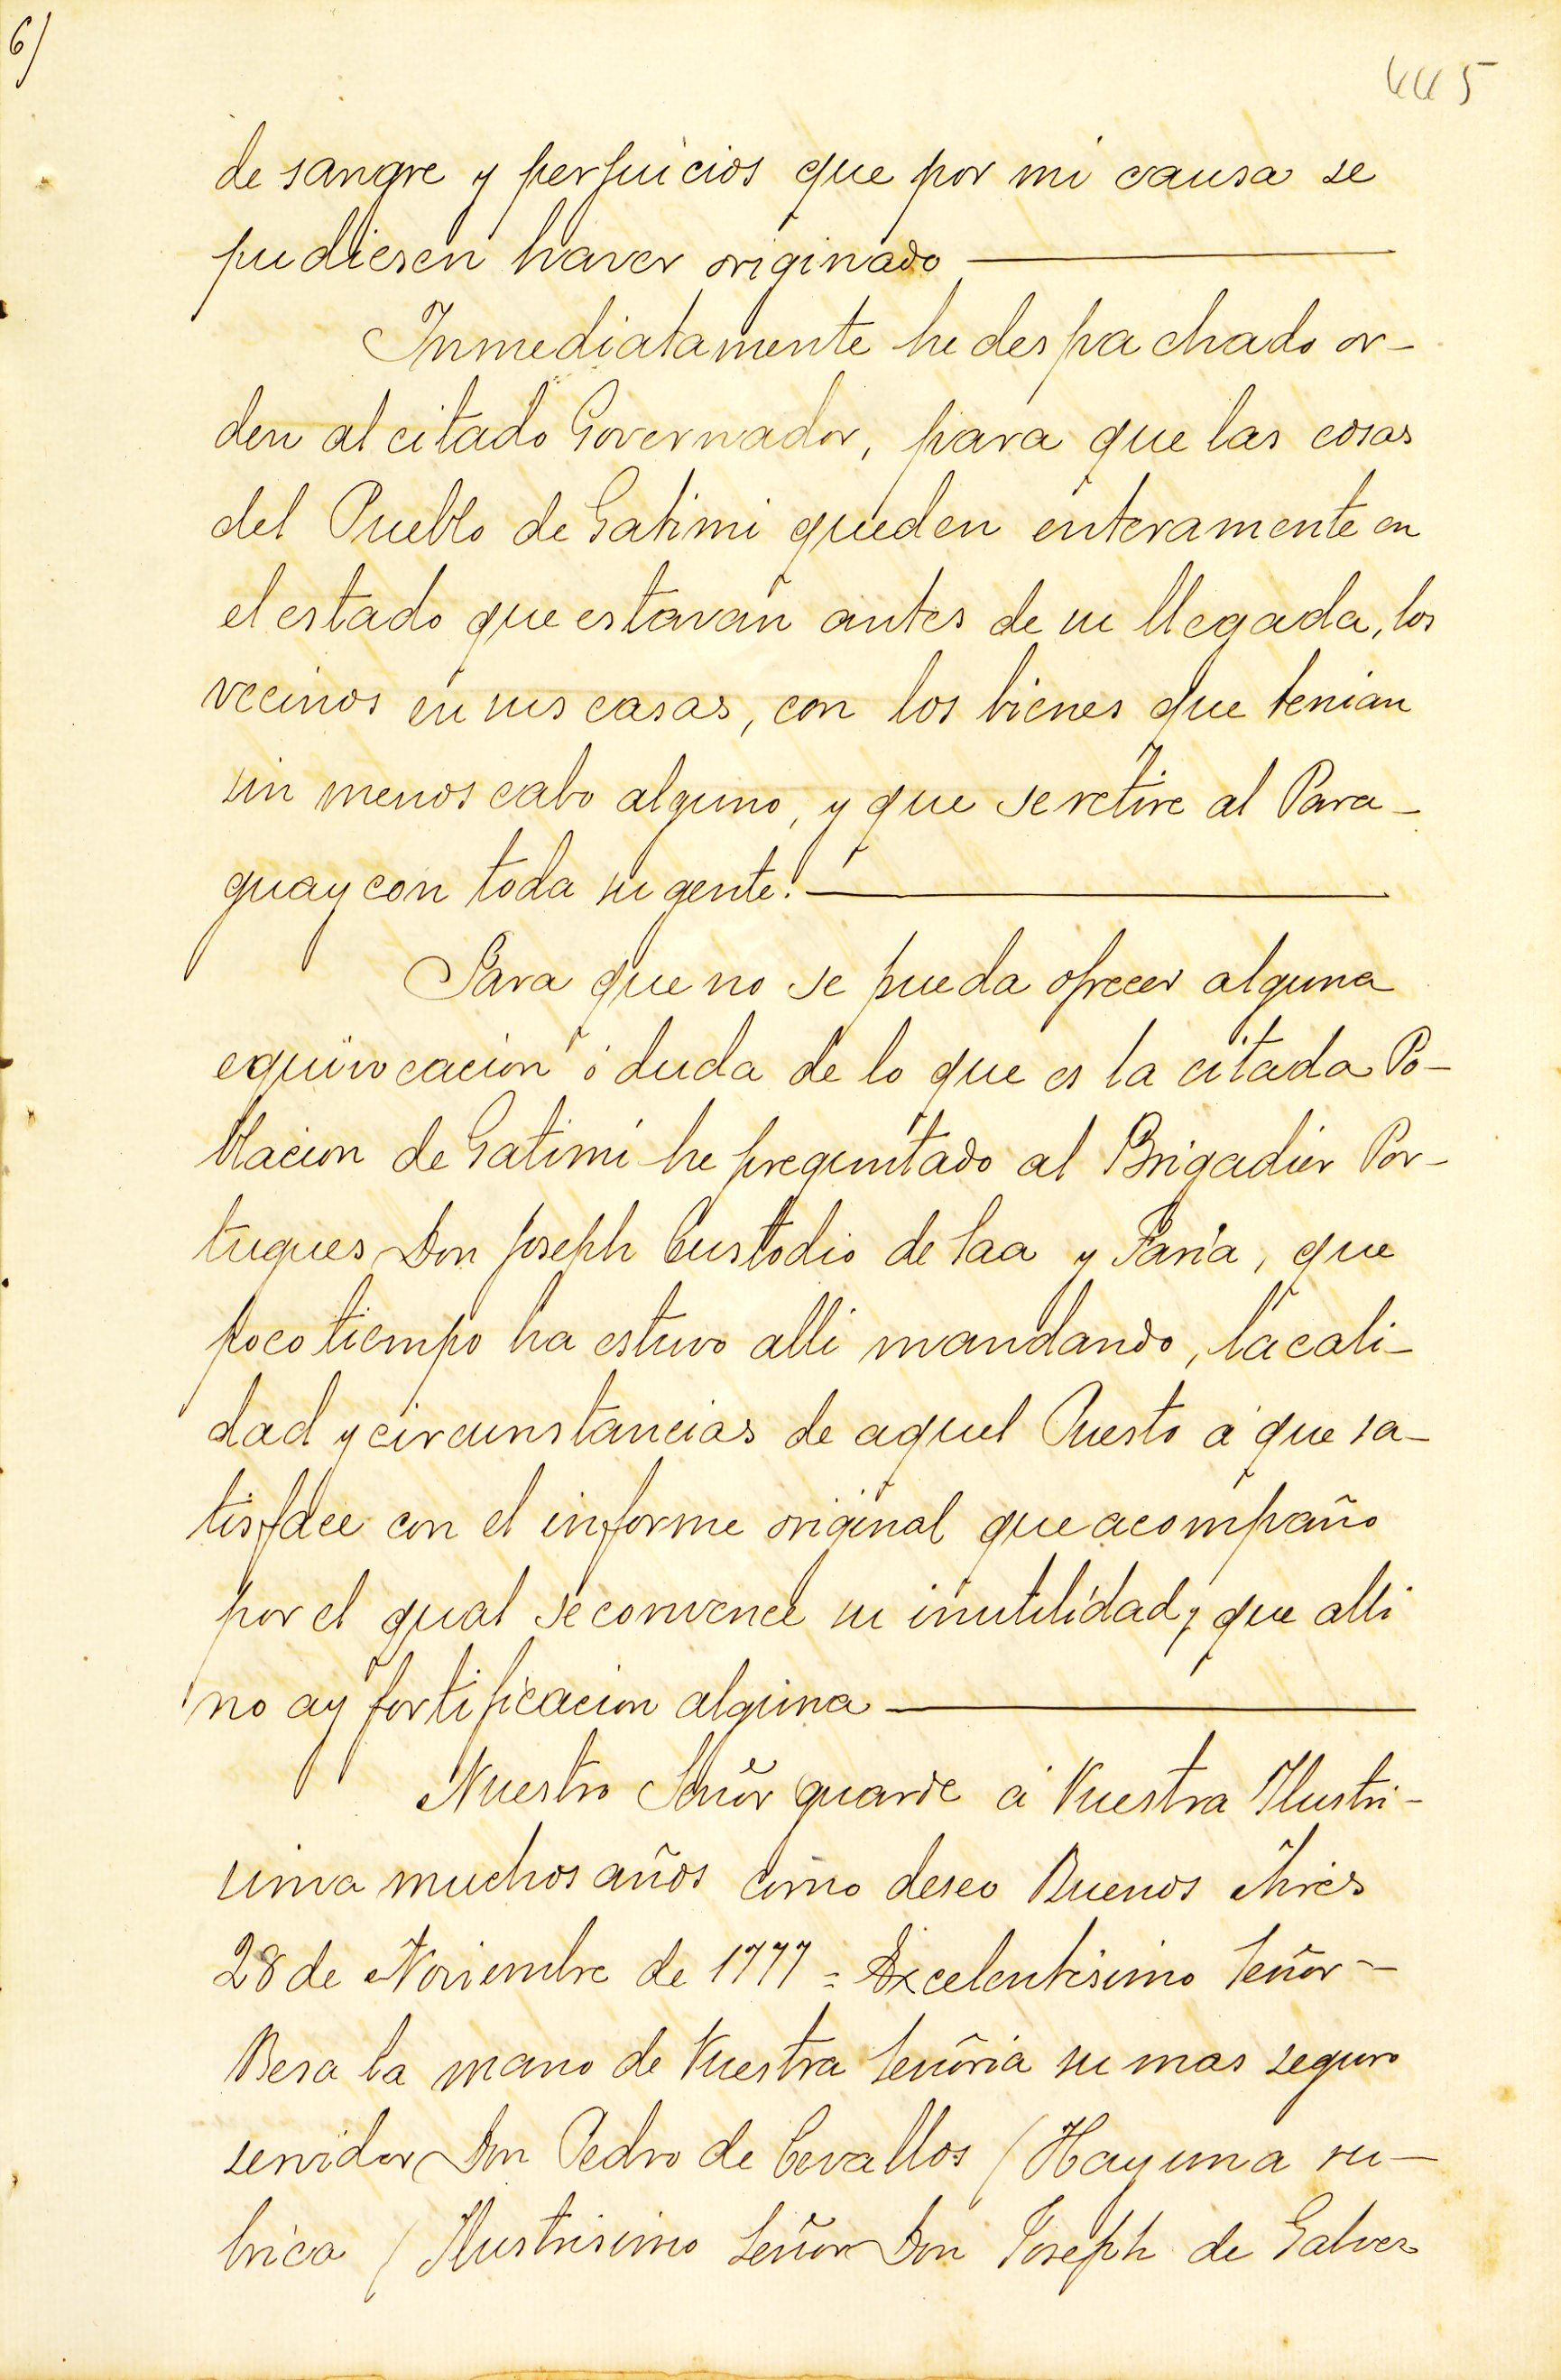 6)
445
de sangre y perjuicios que por mi causa se
pudiesen haver originado
Inmediatamente he despachado or-
den al citado Governador, para que las cosas
del Pueblo de Gatimi queden enteramente en
el estado que estavan antes de su llegada, los
vecinos en sus casas, con los bienes que tenian
sin menoscabo alguno, y que se retire al Para-
guay con toda su gente.
Para que no se pueda ofrecer alguna
equivocacion ó duda de lo que es la citada Po-
blacion de Gatimi he preguntado al Brigadier Por-
tugues Don Joseph Custodio de Saa y Faria, que
poco tiempo ha estuvo alli mandando, la cali-
dad y circunstancias de aquel Puesto á que sa-
tisface con el informe original que acompaño
por el qual se convence su inutilidad, y que alli
no ay fortificacion alguna
Nuestro Señor guarde á Vuestra Ilustri-
sima muchos años como deseo Buenos Aires
28 de Noviembre de 1777 = Excelentisimo Señor -
Besa la mano de Vuestra Señoria su mas seguro
servidor Don Pedro de Cevallos / Hay una ru-
brica / Ilustrisimo Señor Don Joseph de Galvez